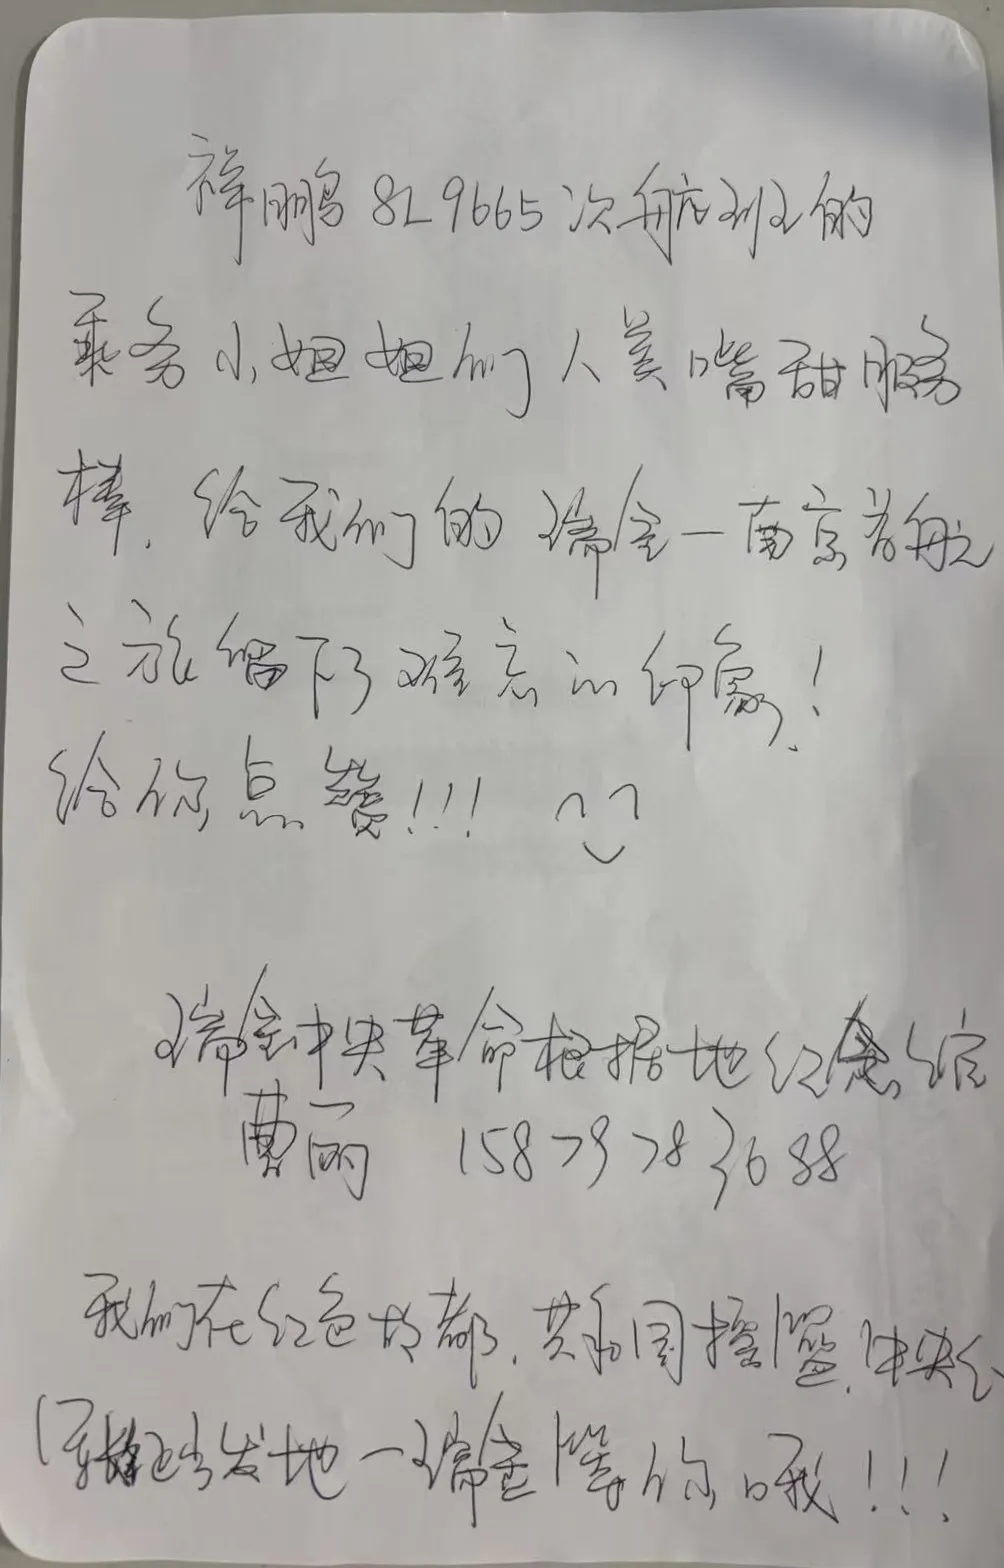 祥鹏8L9665次航班的
乘务小姐姐们人美嘴甜服务
棒,给我们的瑞金一南京首航
之旅留下了难忘的印象!
给你点赞!!!
瑞金中央革命根据地纪念馆
曹丽 15879783688
我们在红色故都,共和国摇篮,中央红
军长征出发地一瑞金等你哦!!!